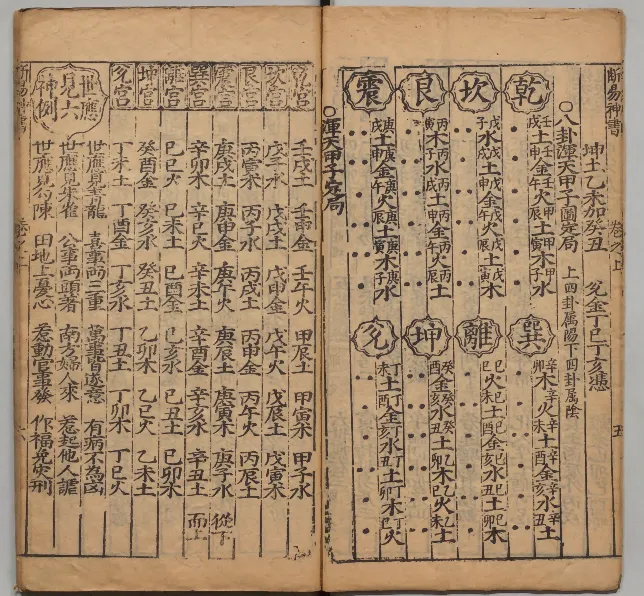 斷易神書 卷之上 五
坤土乙未加癸丑 兌金丁巳丁亥憑
○八卦渾天甲子圖定局 上四卦属陽下四卦属陰
乾 壬戌土 壬申金 壬午火 甲辰土 甲寅木 甲子水
巽 辛卯木 辛巳火 辛未土 辛酉金 辛亥水 辛丑土
坎 戊子水 戊戌土 戊申金 戊午火 戊辰土 戊寅木
離 己巳火 己未土 己酉金 己亥水 己丑土 己卯木
艮 丙寅木 丙子水 丙戌土 丙申金 丙午火 丙辰土
坤 癸酉金 癸亥水 癸丑土 乙卯木 乙巳火 乙未土
震 庚戌土 庚申金 庚午火 庚辰土 庚寅木 庚子水
兌 丁未土 丁酉金 丁亥水 丁丑土 丁卯木 丁巳火
○渾天甲子定局
乾宮 壬戌土 壬申金 壬午火 甲辰土 甲寅木 甲子水
坎宮 戊子水 戊戌土 戊申金 戊午火 戊辰土 戊寅木
艮宮 丙寅木 丙子水 丙戌土 丙申金 丙午火 丙辰土
震宮 庚戌土 庚申金 庚午火 庚辰土 庚寅木 庚子水 從下
巽宮 辛卯木 辛巳火 辛未土 辛酉金 辛亥水 辛丑土 而上
離宮 己巳火 己未土 己酉金 己亥水 己丑土 己卯木
坤宮 癸酉金 癸亥水 癸丑土 乙卯木 乙巳火 乙未土
兌宮 丁未土 丁酉金 丁亥水 丁丑土 丁卯木 丁巳火
世應見六神例
世應見青龍 喜事兩三重 萬事皆遂意 有病不為凶
世應見朱雀 公事两頭著 南方婦人來 惹起他人謔
世應見勾陳 田地上憂心 惹動官事發 作福免灾刑